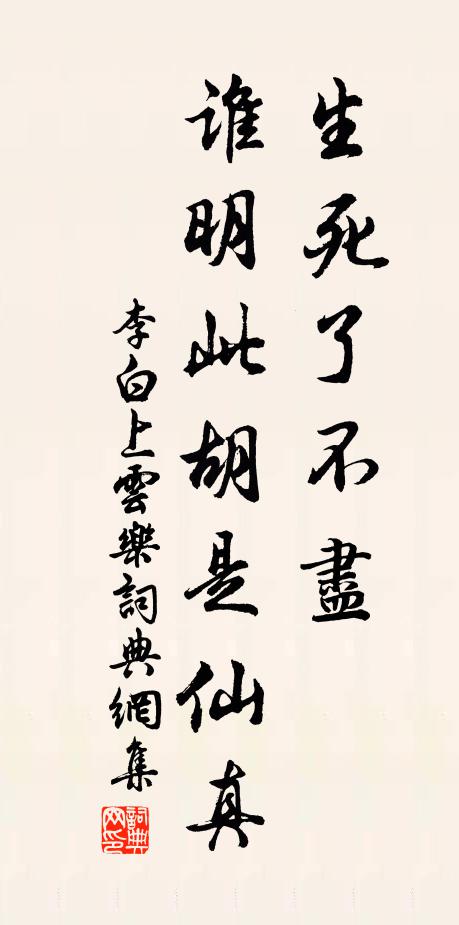 生死了不盡
谁明此胡是仙真
李白上雲樂詞典網集
詞典
网印